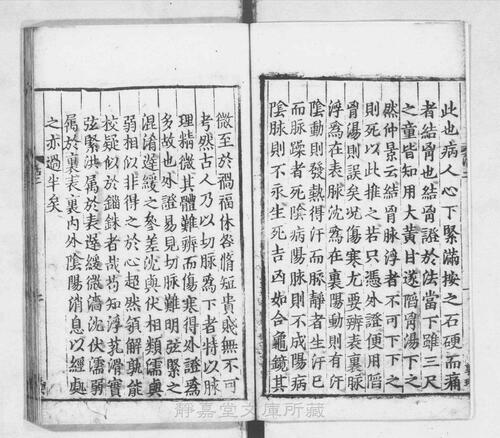 此也病人心下緊滿按之石硬而痛
者結胷也結胷證於法當下雖三尺
之童皆知用大黄甘遂陷胷湯下之
然仲景云結胷脉浮者不可下下之
則死以此推之若只憑外證便用陷
胷湯則誤矣况傷寒尤要辨表裏脉
浮爲在表脉沈爲在裏陽動則有汗
隂動則發熱得汗而脉靜者生汗已
而脉躁者死隂病陽脉則不成陽病
隂脉則不永生死吉凶如合龜鏡其
微至於禍福休咎脩短貴賤無不可
考然古人乃以切脉爲下者特以脉
理精微其體難辨而傷寒得外證爲
多故也外證易見切脉難明弦緊之
混淆遅緩之參差沈與伏相類濡與
弱相似非得之於心超然領解孰能
校疑似於錙銖者哉茍知浮芤滑實
弦緊洪属於表遅緩微濇沈伏濡弱
属於裏表裏内外隂陽消息以經與
之亦過半矣
靜嘉堂文庫所蔵